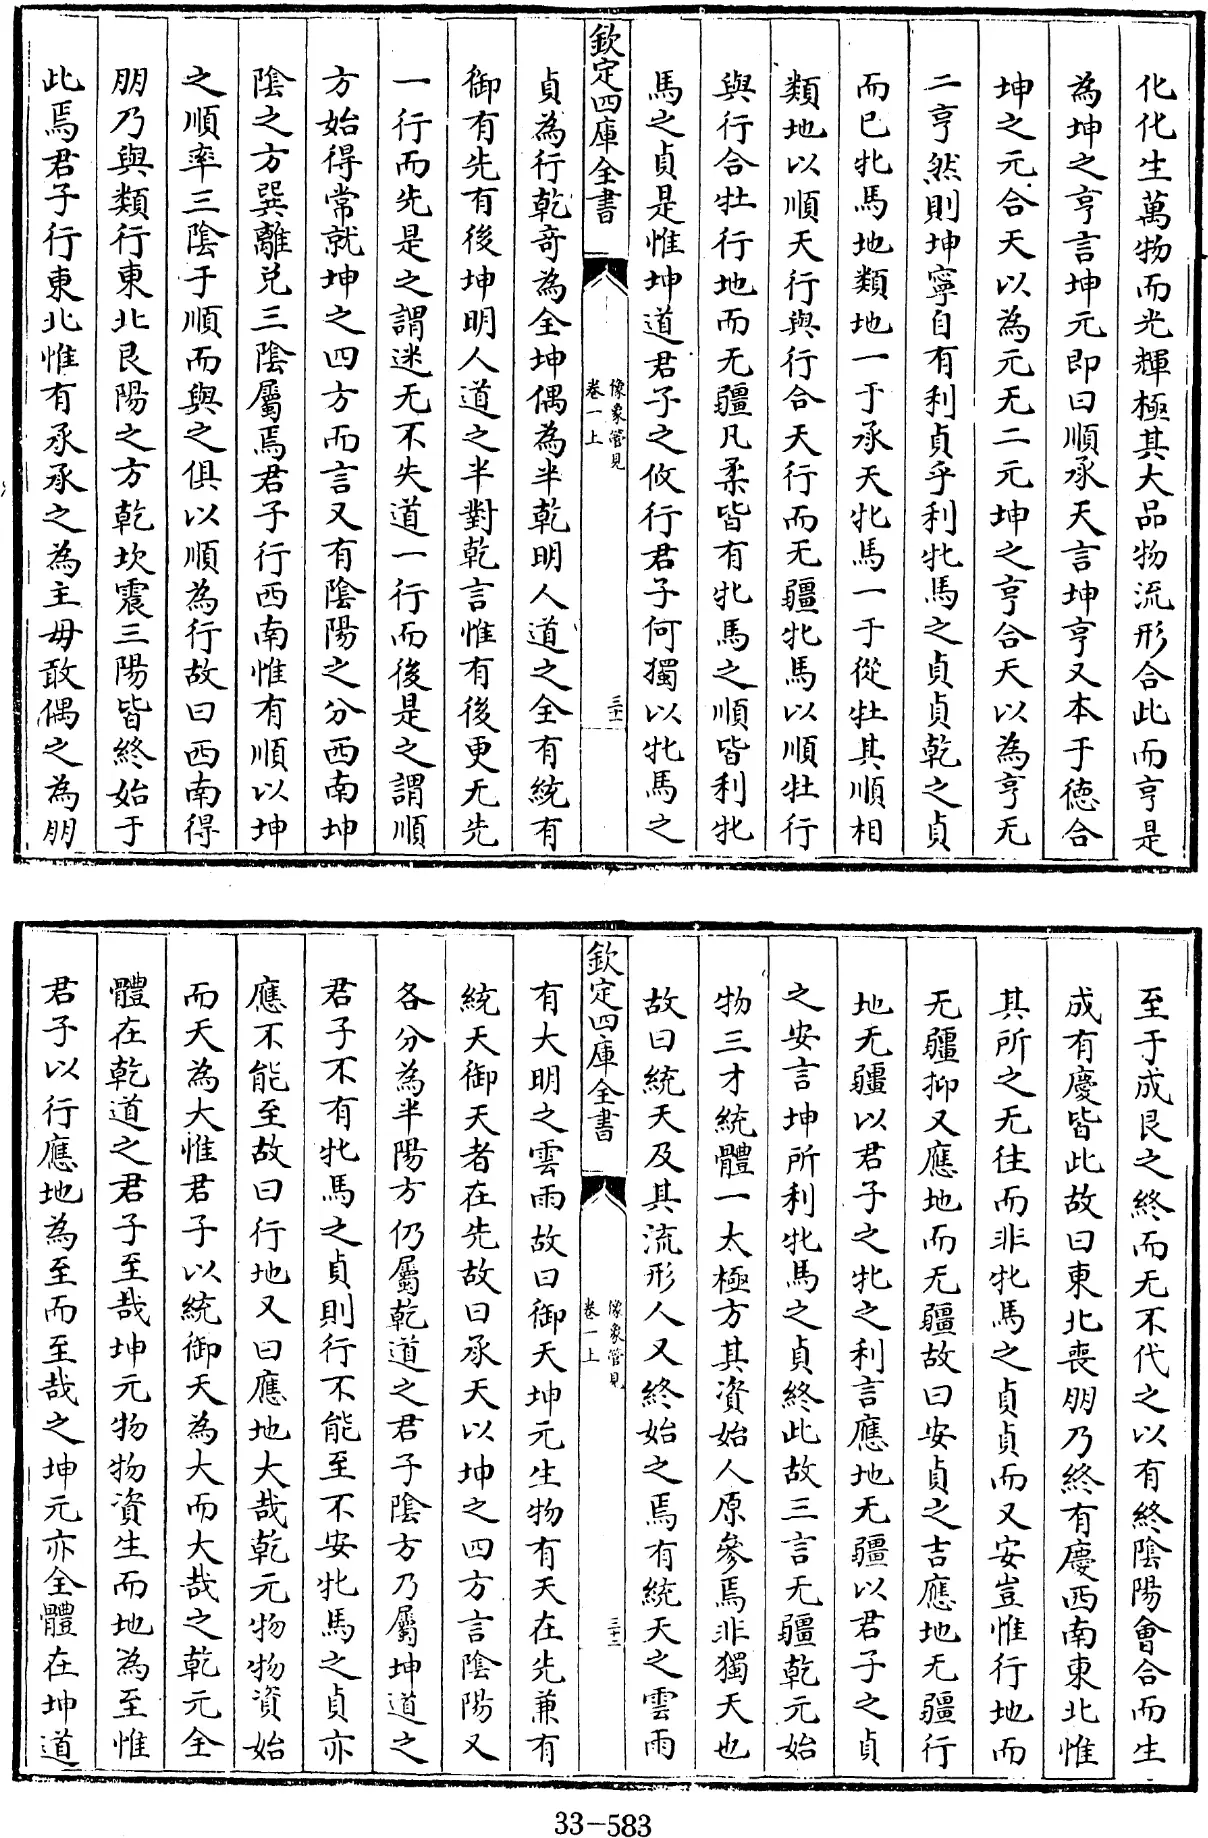 化化生萬物而光輝極其大品物流形合此而亨是
為坤之亨言坤元即曰順承天言坤亨又本于德合
坤之元合天以為元无二元坤之亨合天以為亨无
二亨然則坤寧自有利貞乎利牝馬之貞貞乾之貞
而已牝馬地類地一于承天牝馬一于從牡其順相
類地以順天行與行合天行而无疆牝馬以順牡行
與行合牡行地而无疆凡柔皆有牝馬之順皆利牝
馬之貞是惟坤道君子之攸行君子何獨以牝馬之
欽定四庫全書
像象管見
卷一上
三十一
貞為行乾奇為全坤偶為半乾明人道之全有統有
御有先有後坤明人道之半對乾言惟有後更无先
一行而先是之謂迷无不失道一行而後是之謂順
方始得常就坤之四方而言又有陰陽之分西南坤
陰之方巽離兌三陰屬焉君子行西南惟有順以坤
之順率三陰于順而與之俱以順為行故曰西南得
朋乃與類行東北艮陽之方乾坎震三陽皆終始于
此焉君子行東北惟有承承之為主毋敢偶之為朋
至于成艮之終而无不代之以有終陰陽會合而生
成有慶皆此故曰東北喪朋乃終有慶西南東北惟
其所之无往而非牝馬之貞貞而又安豈惟行地而
无疆抑又應地而无疆故曰安貞之吉應地无疆行
地无疆以君子之牝之利言應地无疆以君子之貞
之安言坤所利牝馬之貞終此故三言无疆乾元始
物三才統體一太極方其資始人原參焉非獨天也
故曰統天及其流形人又終始之焉有統天之雲雨
欽定四庫全書
像象管見
卷一上
三十二
有大明之雲雨故曰御天坤元生物有天在先兼有
統天御天者在先故曰承天以坤之四方言陰陽又
各分為半陽方仍屬乾道之君子陰方乃屬坤道之
君子不有牝馬之貞則行不能至不安牝馬之貞亦
應不能至故曰行地又曰應地大哉乾元物物資始
而天為大惟君子以統御天為大而大哉之乾元全
體在乾道之君子至哉坤元物物資生而地為至惟
君子以行應地為至而至哉之坤元亦全體在坤道
33-583